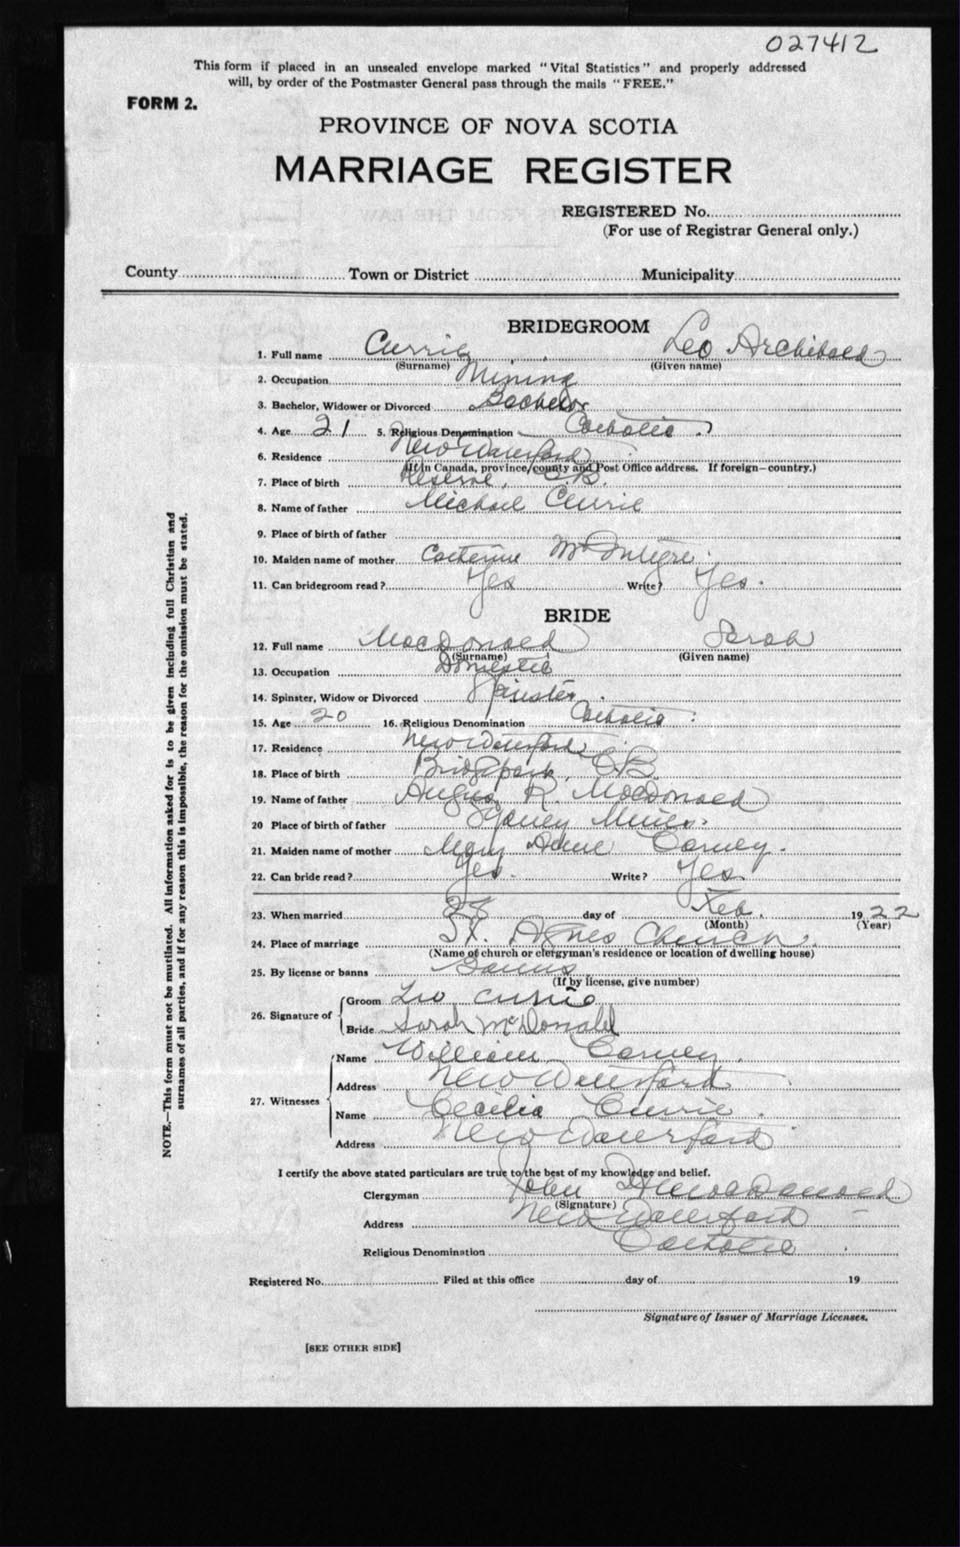 027412
This form if placed in an unsealed envelope marked "Vital Statistics" and properly addressed
will, by order of the Postmaster General pass through the mails "FREE."
FORM 2.
PROVINCE OF NOVA SCOTIA
MARRIAGE REGISTER
REGISTERED No.
(For use of Registrar General only.)
County Town or District Municipality
BRIDEGROOM
1. Full name Currie Leo Archibald
(Surname) (Given name)
2. Occupation Mining
3. Bachelor, Widower or Divorced Bachelor
4. Age 21 5. Religious Denomination Catholic
6. Residence New Waterford
(If in Canada, province/county and Post Office address. If foreign—country.)
7. Place of birth Reserve, C.B.
8. Name of father Michael Currie
9. Place of birth of father
10. Maiden name of mother Catherine
11. Can bridegroom read? Yes Write? Yes.
BRIDE
12. Full name MacDonald Sarah
(Surname) (Given name)
13. Occupation Domestic
14. Spinster, Widow or Divorced Spinster
15. Age 20 16. Religious Denomination Catholic
17. Residence New Waterford
18. Place of birth C.B.
19. Name of father Angus R. MacDonald
20 Place of birth of father Sydney Mines.
21. Maiden name of mother Mary Carney.
22. Can bride read? Yes. Write? Yes
23. When married day of Feb. 1922
(Month) (Year)
24. Place of marriage St. Agnes Church.
(Name of church or clergyman's residence or location of dwelling house)
25. By license or banns Banns
(If by license, give number)
26. Signature of Groom Leo Currie
Bride Sarah McDonald
27. Witnesses Name William Carney.
Address New Waterford
Name Cecilia Currie.
Address New Waterford
I certify the above stated particulars are true to the best of my knowledge and belief.
Clergyman John
(Signature)
Address New Waterford
Religious Denomination Catholic
Registered No. Filed at this office day of 19
Signature of Issuer of Marriage Licenses.
[SEE OTHER SIDE]
NOTE.—This form must not be mutilated. All information asked for is to be given including full Christian and
surnames of all parties, and if for any reason this is impossible, the reason for the omission must be stated.